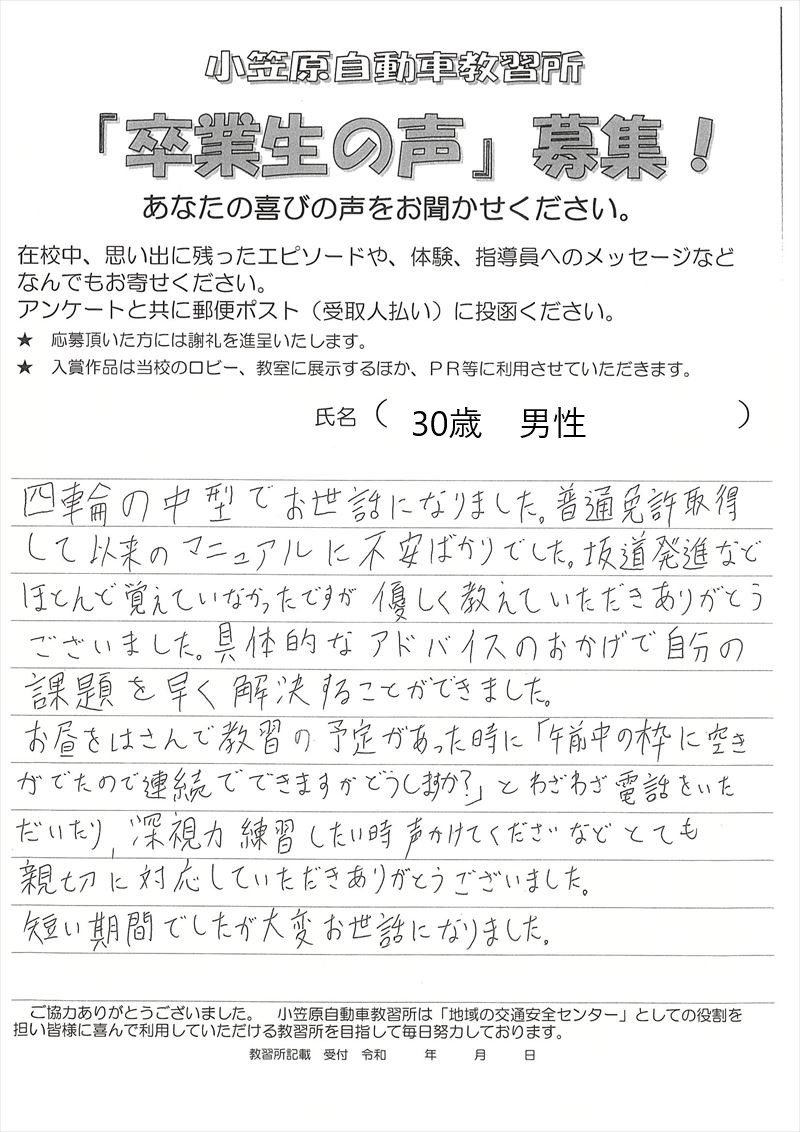 小笠原自動車教習所
「卒業生の声」募集！
あなたの喜びの声をお聞かせください。
在校中、思い出に残ったエピソードや、体験、指導員へのメッセージなど
なんでもお寄せください。
アンケートと共に郵便ポスト（受取人払い）に投函ください。
★ 応募頂いた方には謝礼を進呈いたします。
★ 入賞作品は当校のロビー、教室に展示するほか、ＰＲ等に利用させていただきます。
氏名（ 30歳 男性 ）
四輪の中型でお世話になりました。普通免許取得
して以来のマニュアルに不安ばかりでした。坂道発進など
ほとんど覚えていなかったですが優しく教えていただきありがとう
ございました。具体的なアドバイスのおかげで自分の
課題を早く解決することができました。
お昼をはさんで教習の予定があった時に「午前中の枠に空き
がでたので連続でできますがどうしますか?」とわざわざ電話をいた
だいたり、深視力練習したい時声かけてくださいなどとても
親切に対応していただきありがとうございました。
短い期間でしたが大変お世話になりました。
ご協力ありがとうございました。 小笠原自動車教習所は「地域の交通安全センター」としての役割を
担い皆様に喜んで利用していただける教習所を目指して毎日努力しております。
教習所記載 受付 令和 年 月 日